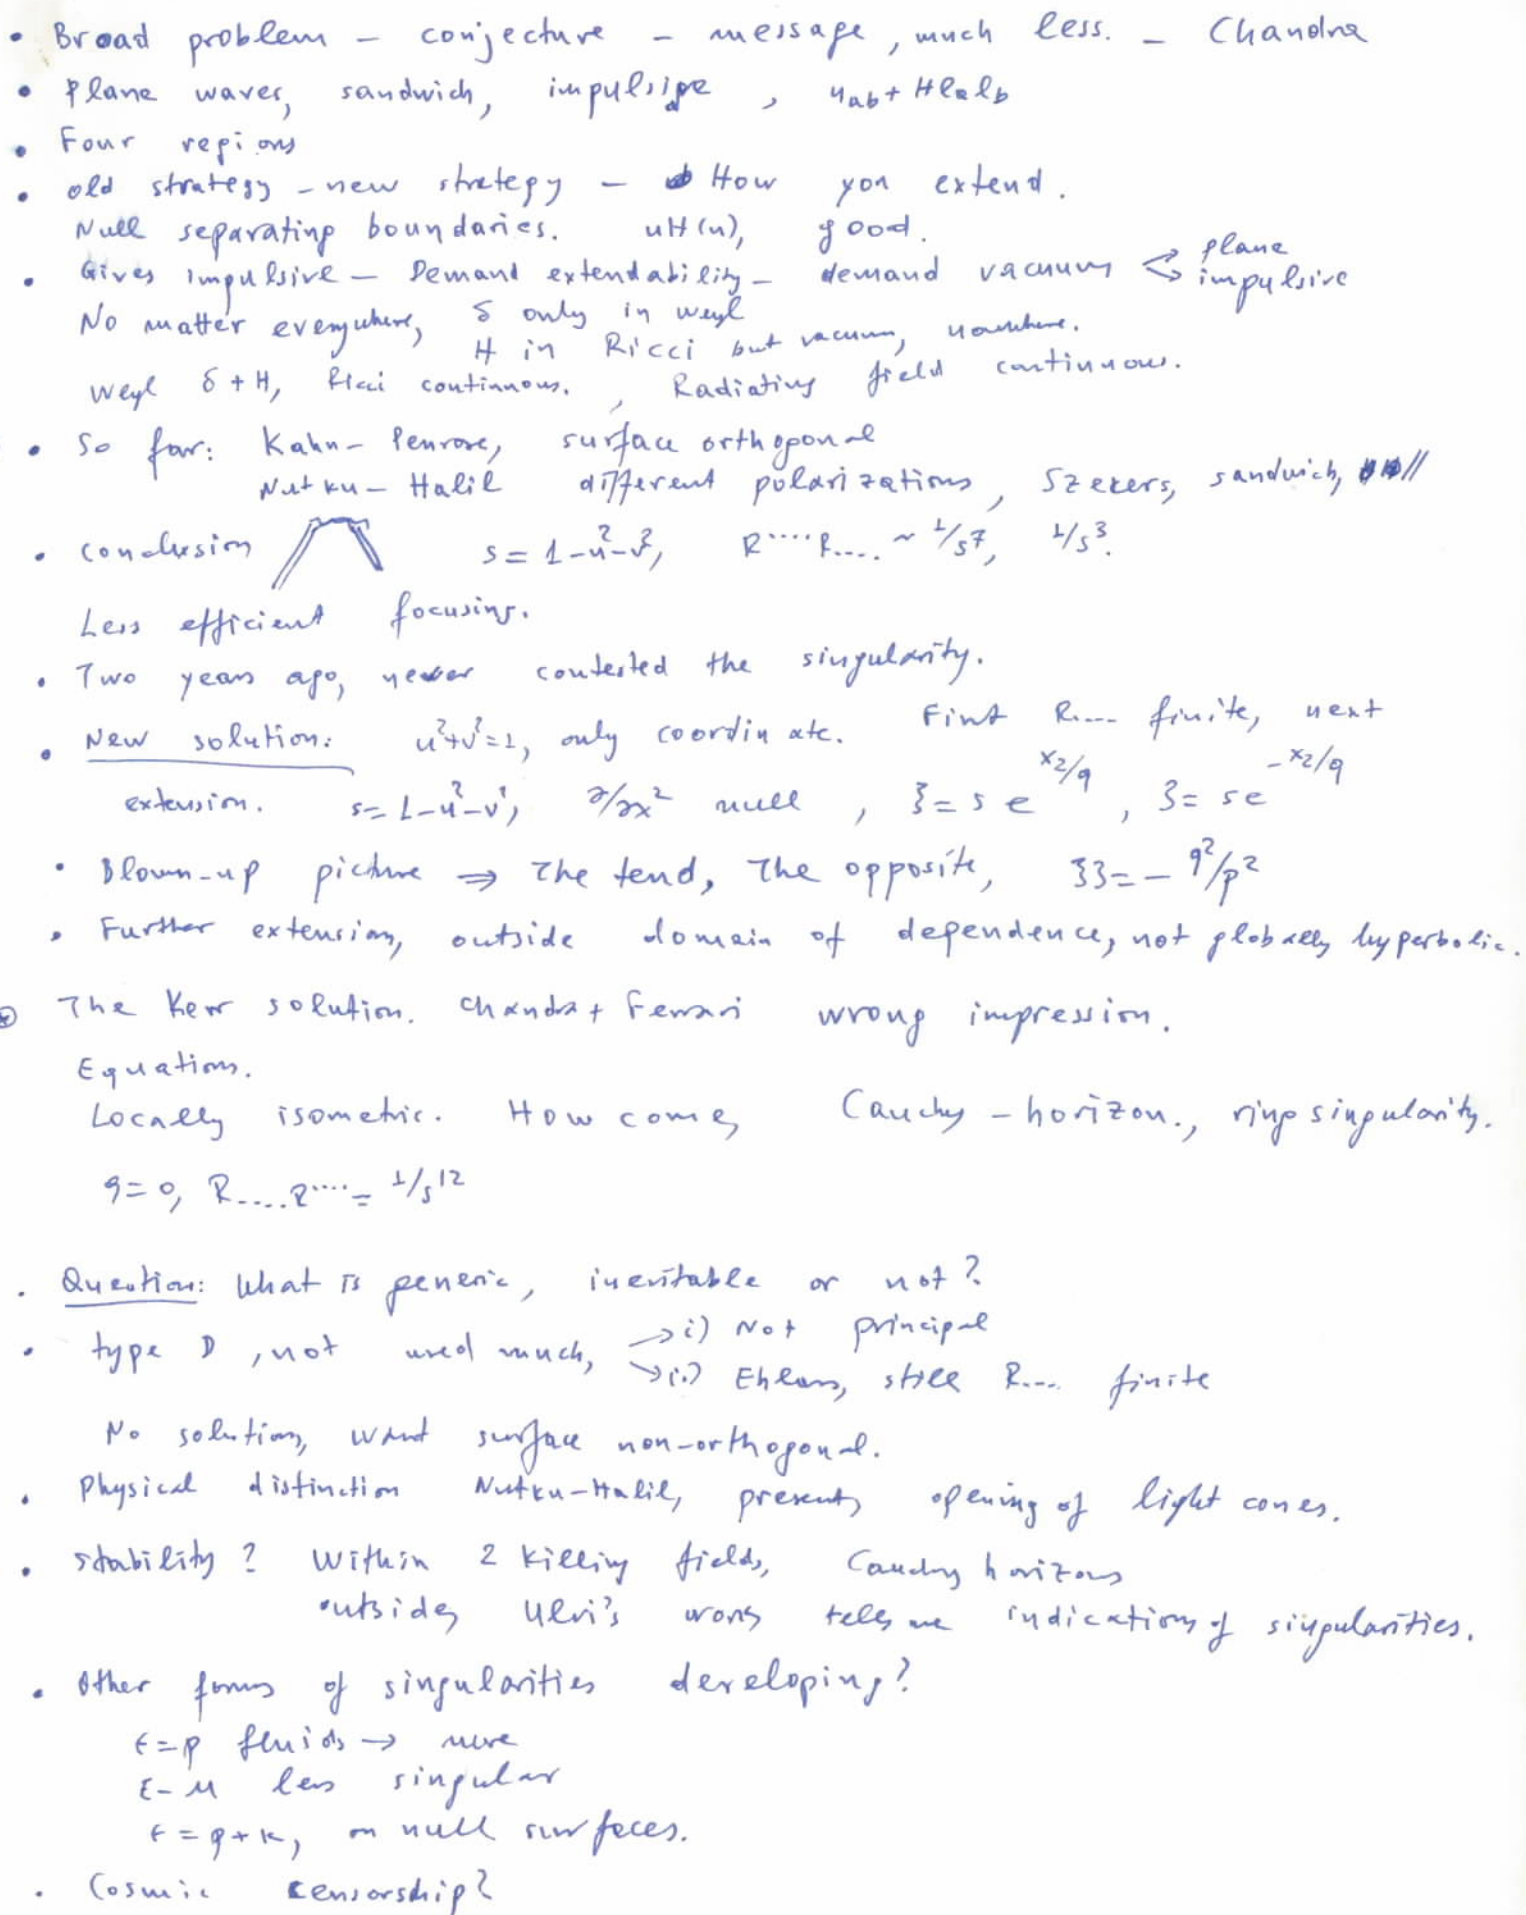 • Broad problem – conjecture – message, much less. – Chandra
• Plane waves, sandwich, impulsive, ηab + Hlalb
• Four regions
• old strategy – new strategy – How you extend.
Null separating boundaries. uH(u), good.
• Gives impulsive – Demand extendability – demand vacuum < plane
impulsive
No matter everywhere, δ only in weyl
H in Ricci but vacuum, nowhere.
Weyl δ + H, Ricci continuous., Radiating field continuous.
• So far: Kahn – Penrose, surface orthogonal
Nutku – Halil different polarizations, Szekers, sandwich, //
• conclusion s = 1-u²-v², R....R.... ~ 1/s⁷, 1/s³.
Less efficient focusing.
• Two years ago, never contested the singularity.
• New solution: u²+v²=1, only coordinate. First R.... finite, next
extension. s = 1-u²-v², ∂/∂x² null, ξ = s e^{x2/q}, ζ = s e^{-x2/q}
• Blown-up picture ⇒ The tend, The opposite, ξζ = - q²/p²
• Further extensions, outside domain of dependence, not globally hyperbolic.
The Kerr solution. Chandra + Ferrari wrong impression.
Equations.
Locally isometric. How come, Cauchy – horizon., ring singularity.
q=0, R....R.... = 1/s¹²
• Question: What is generic, inevitable or not?
• type D, not used much, → i) Not principal
→ ii) Ehlers, still R.... finite
No solutions, want surface non-orthogonal.
• Physical distinction Nutku-Halil, presents opening of light cones.
• stability? Within 2 killing fields, Cauchy horizons
outside, Ulvi's wrong tells me indications of singularities.
• Other forms of singularities developing?
ε=p fluids → more
E-M less singular
ε = p+k, on null surfaces.
• Cosmic censorship?